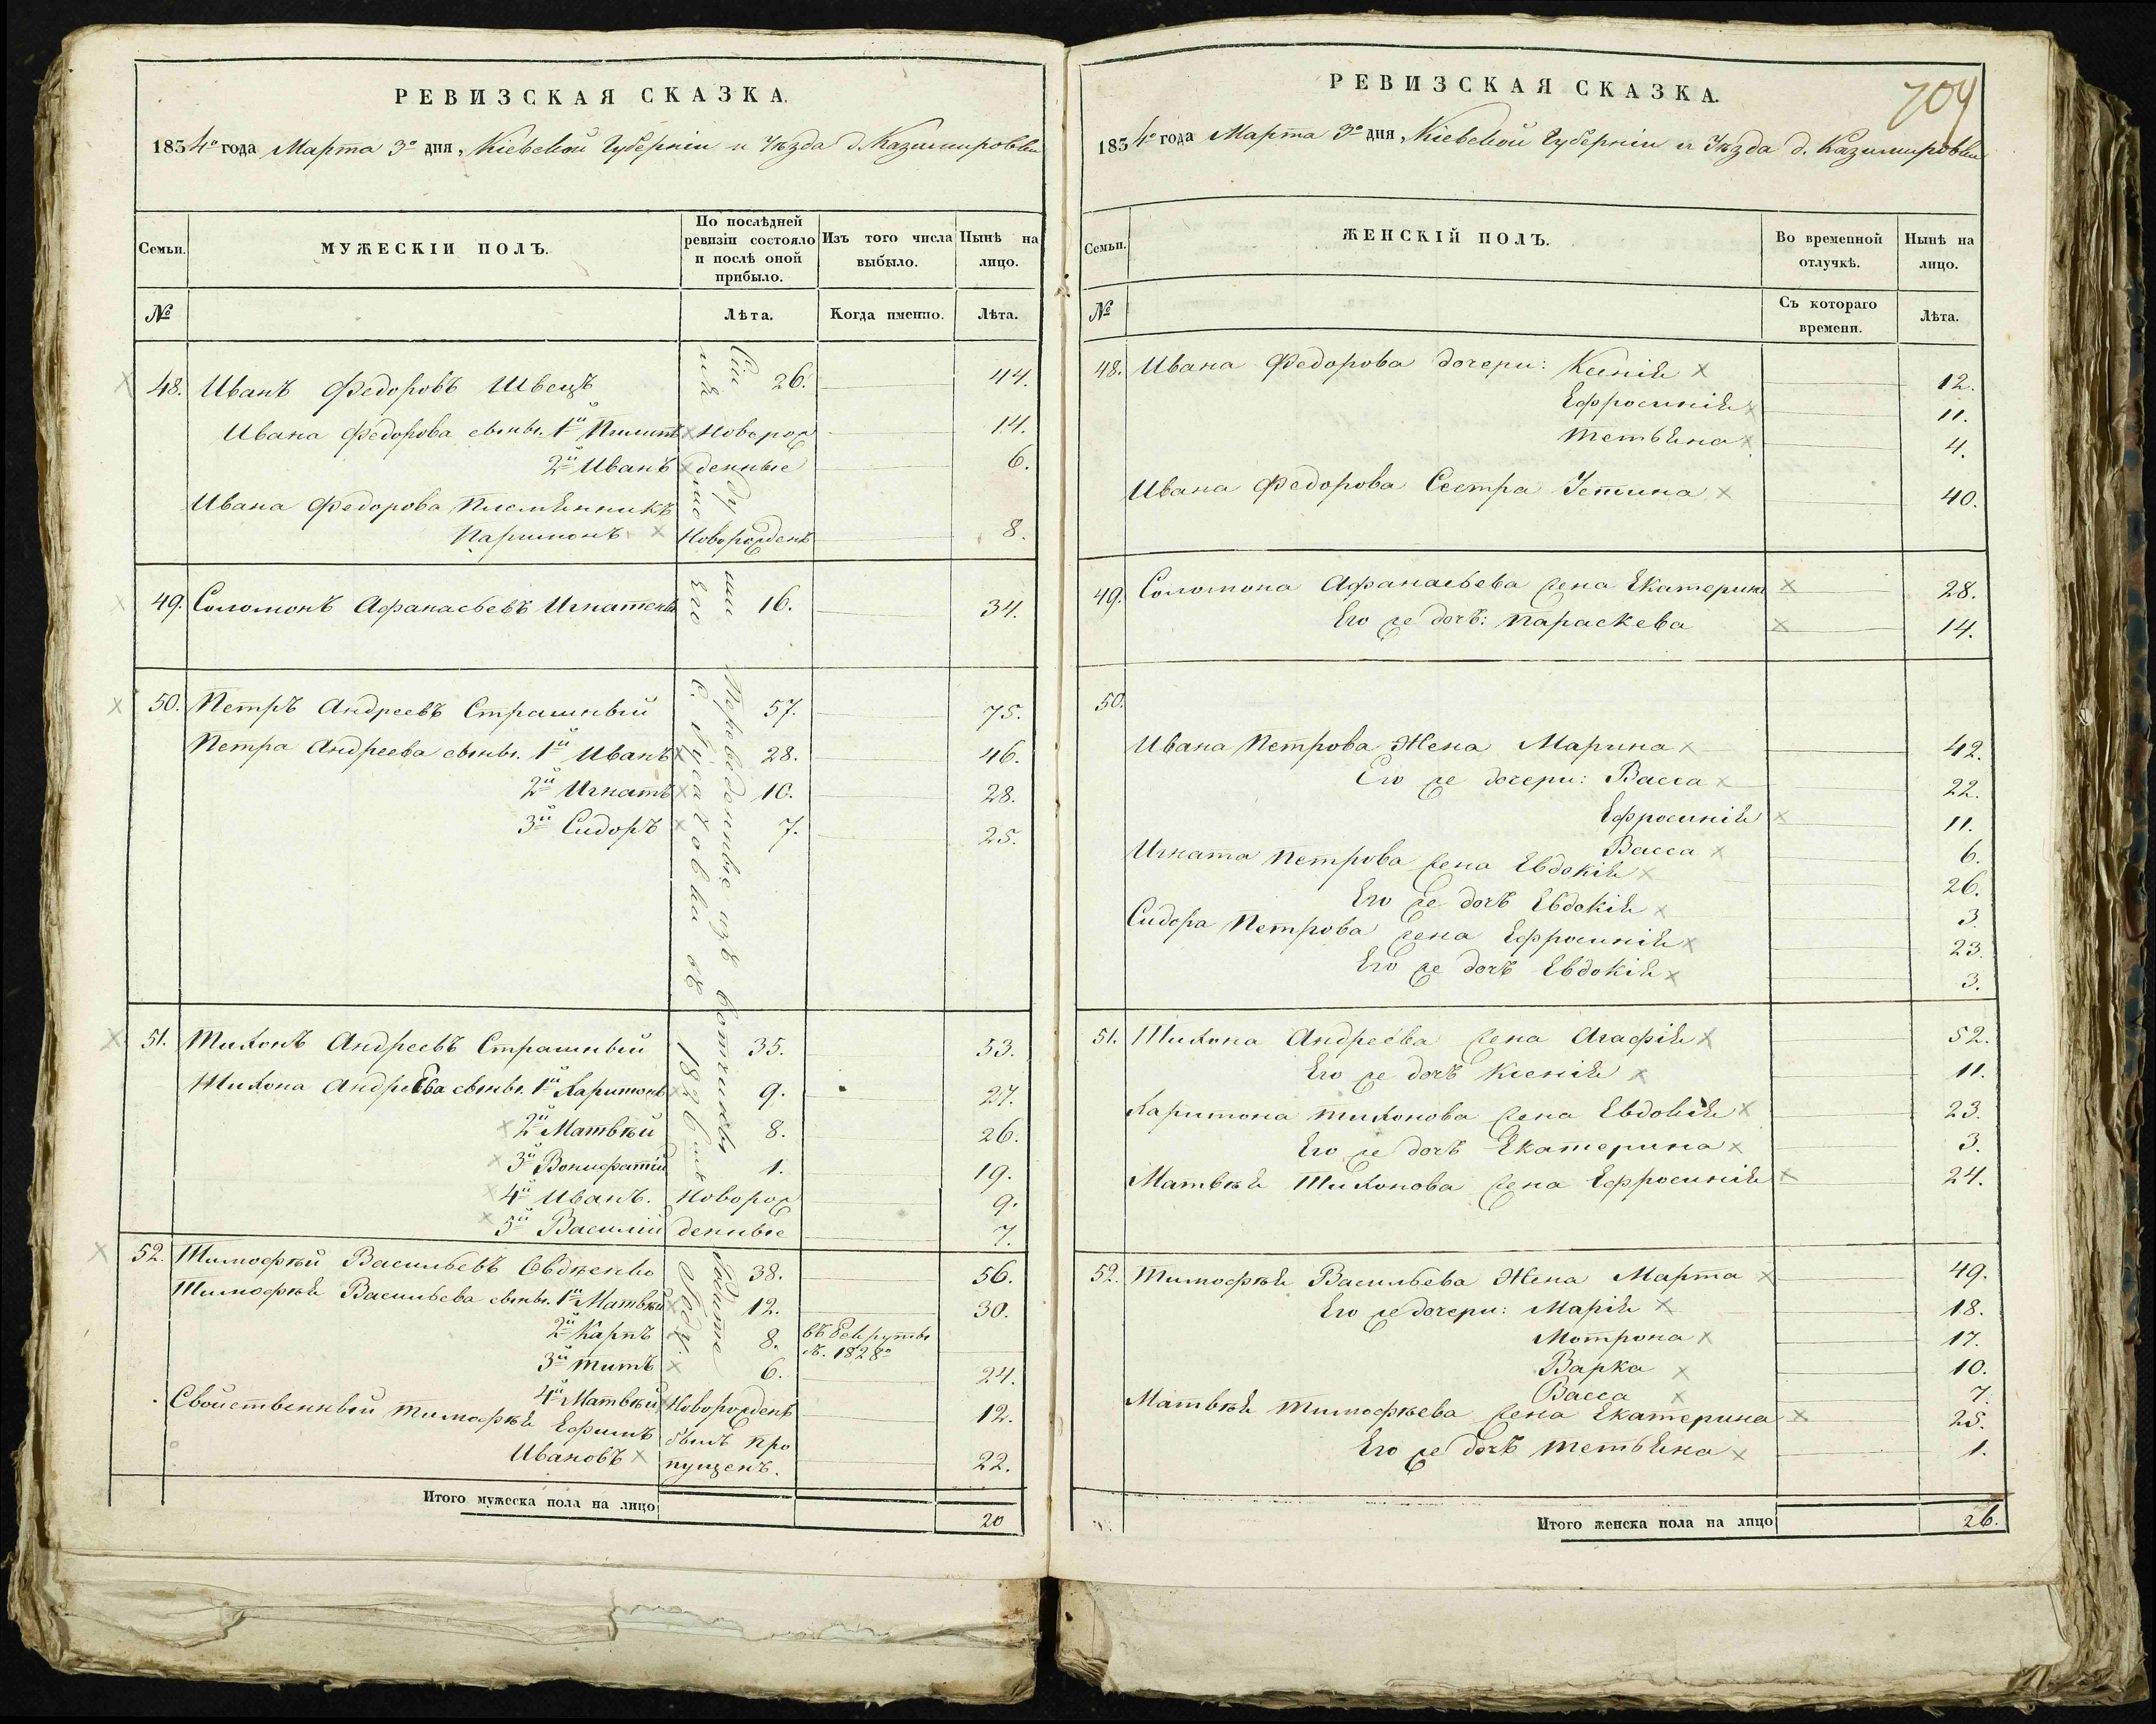 РЕВИЗСКАЯ СКАЗКА.
1834го года Марта 3го дня, Кіевской Губерніи и Уѣзда д. Казимировки
Семьи.
МУЖЕСКІЙ ПОЛЪ.
По послѣдней ревизіи состояло и послѣ оной прибыло.
Изъ того числа выбыло.
Нынѣ на лицо.
№
Лѣта.
Когда именно.
Лѣта.
48. Иванъ Федоровъ Швецъ 26. 44.
Ивана Федорова сыны. 1й Пилипъ Новорож 14.
2й Иванъ денные 6.
Ивана Федорова Племянникъ
Паримонъ Новорожденъ 8.
49. Соломонъ Афанасьевъ Игнатенко 16. 34.
50. Петръ Андреевъ Страшный 57. 75.
Петра Андреева сыны. 1й Иванъ 28. 46.
2й Игнатъ 10. 28.
3й Сидоръ 7. 25.
51. Тихонъ Андреевъ Страшный 35. 53.
Тихона Андреева сыны. 1й Харитонъ 9. 27.
2й Матвѣй 8. 26.
3й Вонифатій 1. 19.
4й Иванъ. Новорож 9.
5й Василій денные 7.
52. Тимофѣй Васильевъ Овдѣенко 38. 56.
Тимофѣя Васильева сыны. 1й Матвѣй 12. 30.
2й Карпъ 8. въ рекруты
въ 1828го
3й Титъ 6. 24.
4й Матвѣй Новорожденъ 12.
Свойственный Тимофѣя Ефимъ былъ про
Ивановъ пущенъ. 22.
Переведенные изъ вотчины
с. 1826
Итого мужеска пола на лицо 20
704
РЕВИЗСКАЯ СКАЗКА.
1834го года Марта 3го дня, Кіевской Губерніи и Уѣзда д. Казимировки
Семьи.
ЖЕНСКІЙ ПОЛЪ.
Во временной отлучкѣ.
Нынѣ на лицо.
№
Съ котораго времени.
Лѣта.
48. Ивана Федорова дочери: Ксенія 12.
Ефросинія 11.
Тетьяна 4.
Ивана Федорова Сестра Устина 40.
49. Соломона Афанасьева жена Екатерина 28.
Его же дочь: Параскева 14.
50.
Ивана Петрова Жена Марина 42.
Его же дочери: Васса 22.
Ефросинія 11.
Васса 6.
Игната Петрова жена Евдокія 26.
Его же дочь Евдокія 3.
Сидора Петрова жена Ефросинія 23.
Его же дочь Евдокія 3.
51. Тихона Андреева жена Агафія 52.
Его же дочь Ксенія 11.
Харитона Тихонова жена Евдокія 23.
Его же дочь Екатерина 3.
Матвѣя Тихонова жена Ефросинія 24.
52. Тимофѣя Васильева Жена Марта 49.
Его же дочери: Марія 18.
Мотрона 17.
Варка 10.
Васса 7.
Матвѣя Тимофѣева жена Екатерина 25.
Его же дочь Тетьяна 1.
Итого женска пола на лицо 26.